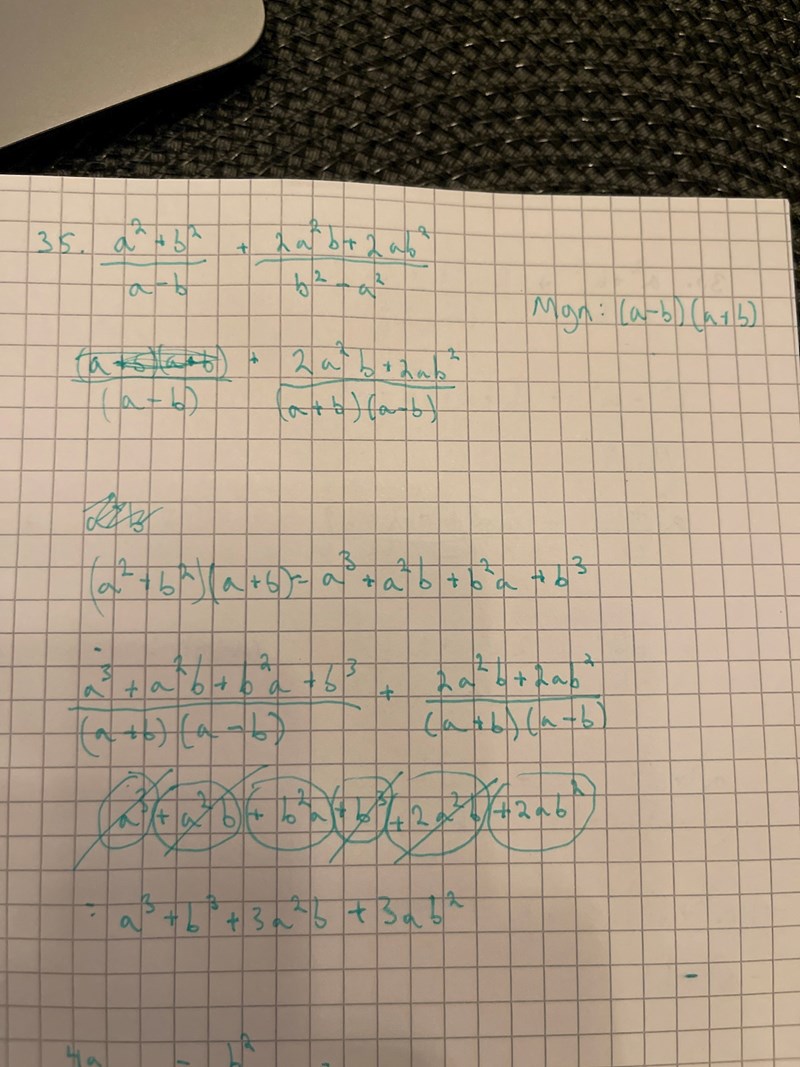 35. (a² + b²)/(a - b) + (2a²b + 2ab²)/(b² - a²)
Mgn: (a-b)(a+b)
/(a - b) + (2a²b + 2ab²)/((a+b)(a-b))
(a² + b²)(a+b) = a³ + a²b + b²a + b³
(a³ + a²b + b²a + b³)/((a+b)(a-b)) + (2a²b + 2ab²)/((a+b)(a-b))
a³ + a²b + b²a + b³ + 2a²b + 2ab²
= a³ + b³ + 3a²b + 3ab²
4a - b²